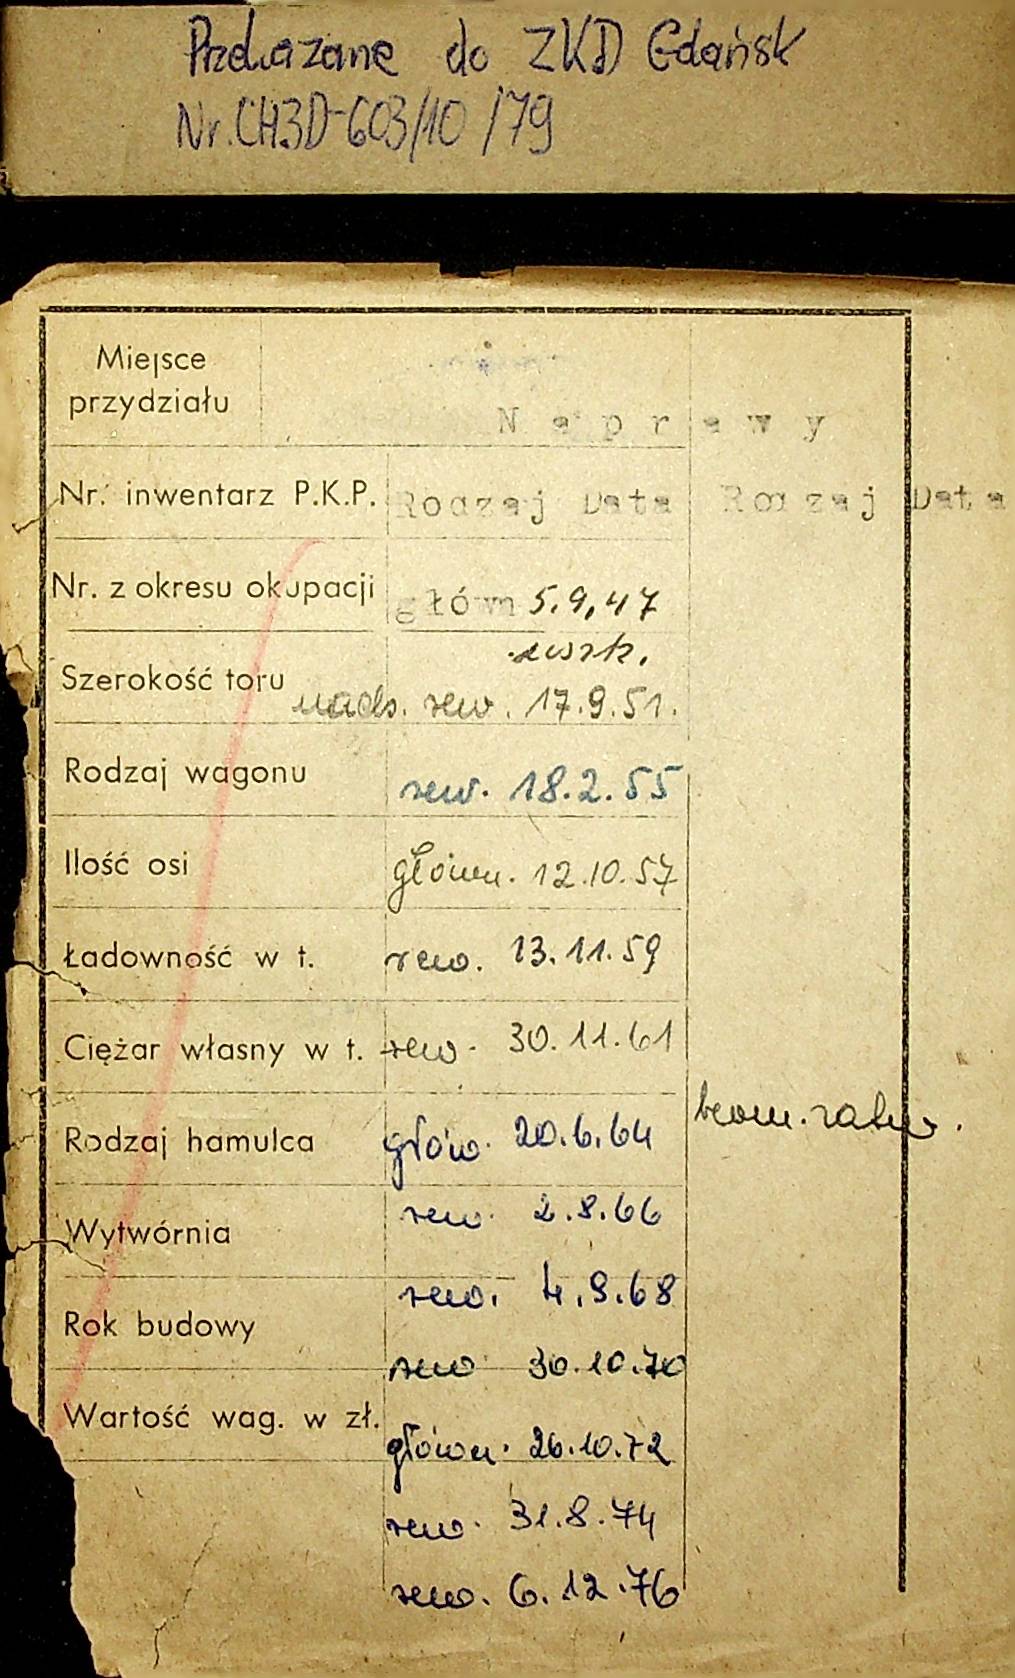 Przekazane do ZKD Gdańsk
Nr. CH3D-603/10/79
Miejsce
przydziału
Naprawy
Nr. inwentarz P.K.P. Rodzaj Data Rodzaj Data
Nr. z okresu okupacji główn 5.9.47
Szerokość toru nads. rew. 17.9.51.
Rodzaj wagonu rew. 18.2.55
Ilość osi główn. 12.10.57
Ładowność w t. rew. 13.11.59
Ciężar własny w t. rew. 30.11.61
Rodzaj hamulca głów. 20.6.64
Wytwórnia rew. 2.8.66
rew. 4.9.68
Rok budowy
rew 30.10.70
Wartość wag. w zł.
główn. 26.10.72
rew. 31.8.74
rew. 6.12.76